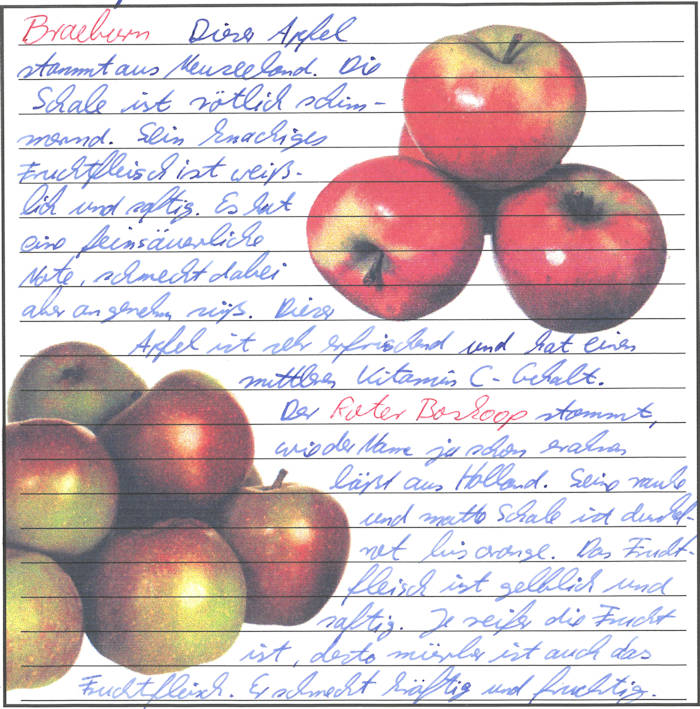 Braeburn Dieser Apfel
stammt aus Neuseeland. Die
Schale ist rötlich schim-
mernd. Sein knackiges
Fruchtfleisch ist weiß-
lich und saftig. Es hat
eine feinsäuerliche
Note, schmeckt dabei
aber angenehm süß. Dieser
Apfel ist sehr erfrischend und hat einen
mittleren Vitamin C-Gehalt.
Der Roter Boskoop stammt,
wie der Name ja schon erahnen
läßt aus Holland. Seine rauhe
und matte Schale ist dunkel-
rot bis orange. Das Frucht-
fleisch ist gelblich und
saftig. Je reifer die Frucht
ist, desto mürber ist auch das
Fruchtfleisch. Er schmeckt kräftig und fruchtig.